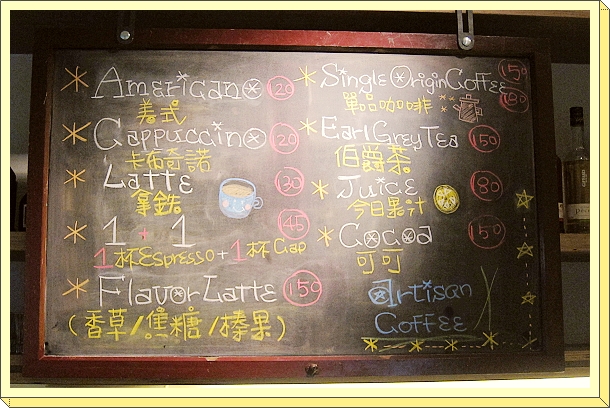 Americano 120
美式
Cappuccino 120
卡布奇諾
Latte 130
拿鐵
1 + 1 145
1杯Espresso + 1杯Cap
Flavor Latte 150
(香草/焦糖/榛果)
Single Origin Coffee 150
單品咖啡 180
Earl Grey Tea 150
伯爵茶
Juice 80
今日果汁
Cocoa 150
可可
Artisan
Coffee